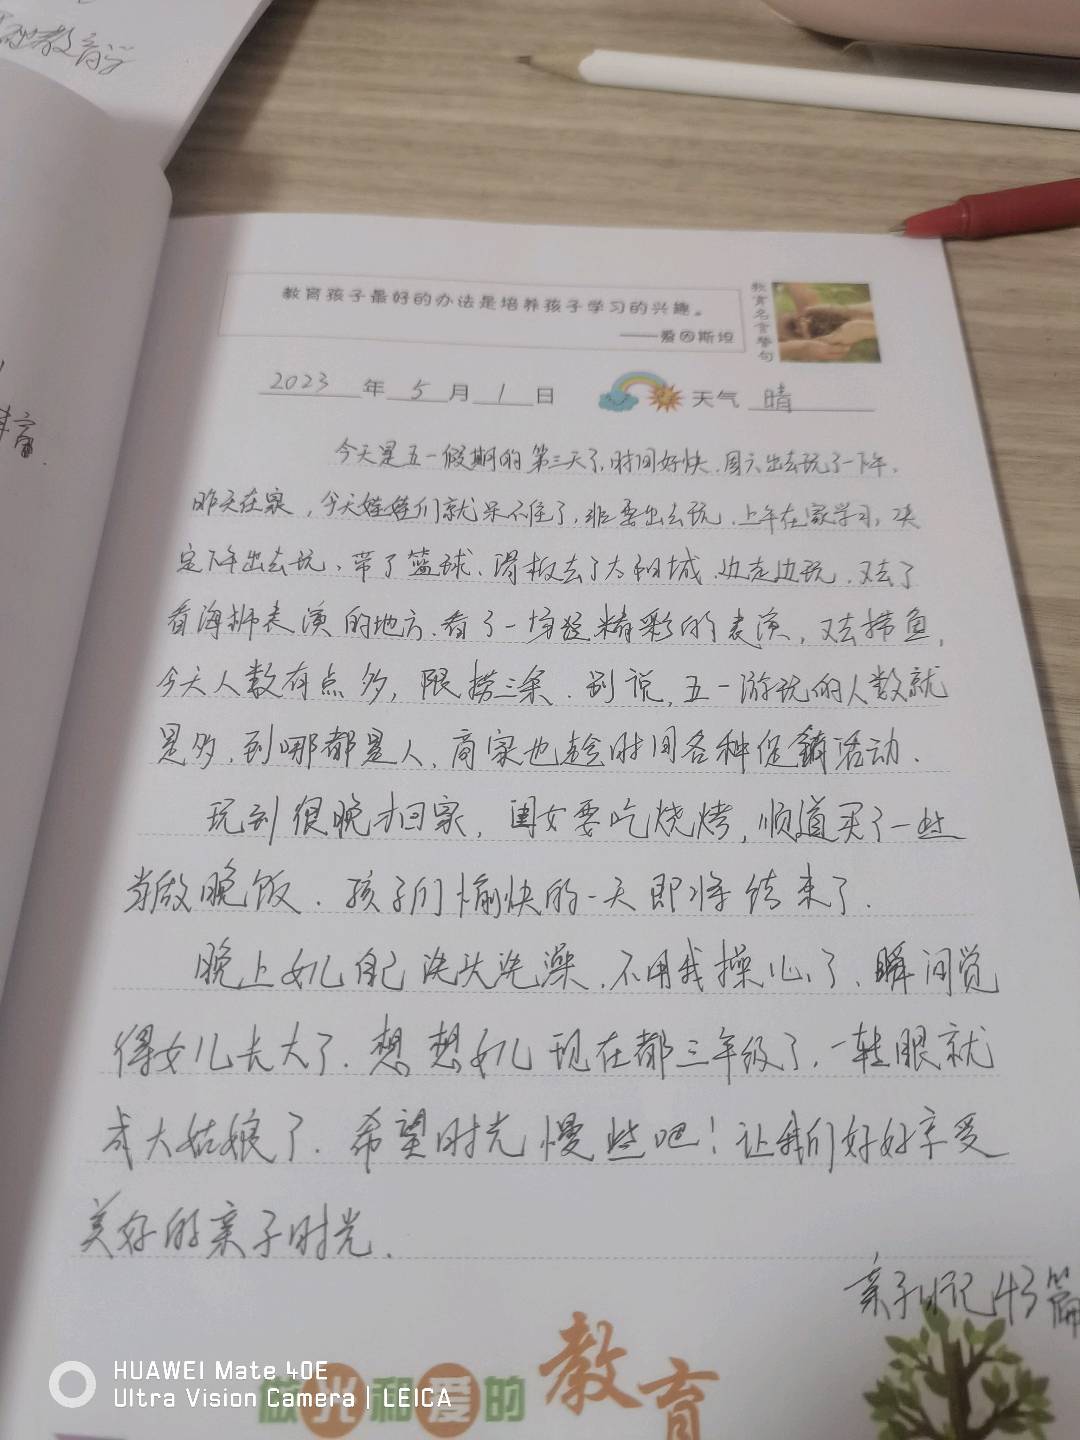 教育学
教育孩子最好的办法是培养孩子学习的兴趣。
——爱因斯坦
教育名言警句
2023年5月1日 天气 晴
今天是五一假期的第三天了,时间好快.周六出去玩了一下午.
昨天在家,今天娃娃们就呆不住了,非要出去玩.上午在家学习,决
定下午出去玩,带了篮球、滑板去了太阳城.边走边玩.又去了
看海狮表演的地方.看了一场精彩的表演,又去捞鱼,
今天人数有点多,限捞三条.别说,五一游玩的人数就
是多.到哪都是人.商家也趁时间各种促销活动.
玩到很晚才回家,闺女要吃烧烤,顺道买了一些
当做晚饭.孩子们愉快的一天即将结束了.
晚上女儿自己洗头洗澡.不用我操心了、瞬间觉
得女儿长大了.想想女儿现在都三年级了,一转眼就
成大姑娘了.希望时光慢些吧!让我们好好享受
美好的亲子时光.
亲子日记43篇
做光和爱的教育
HUAWEI Mate 40E
Ultra Vision Camera | LEICA